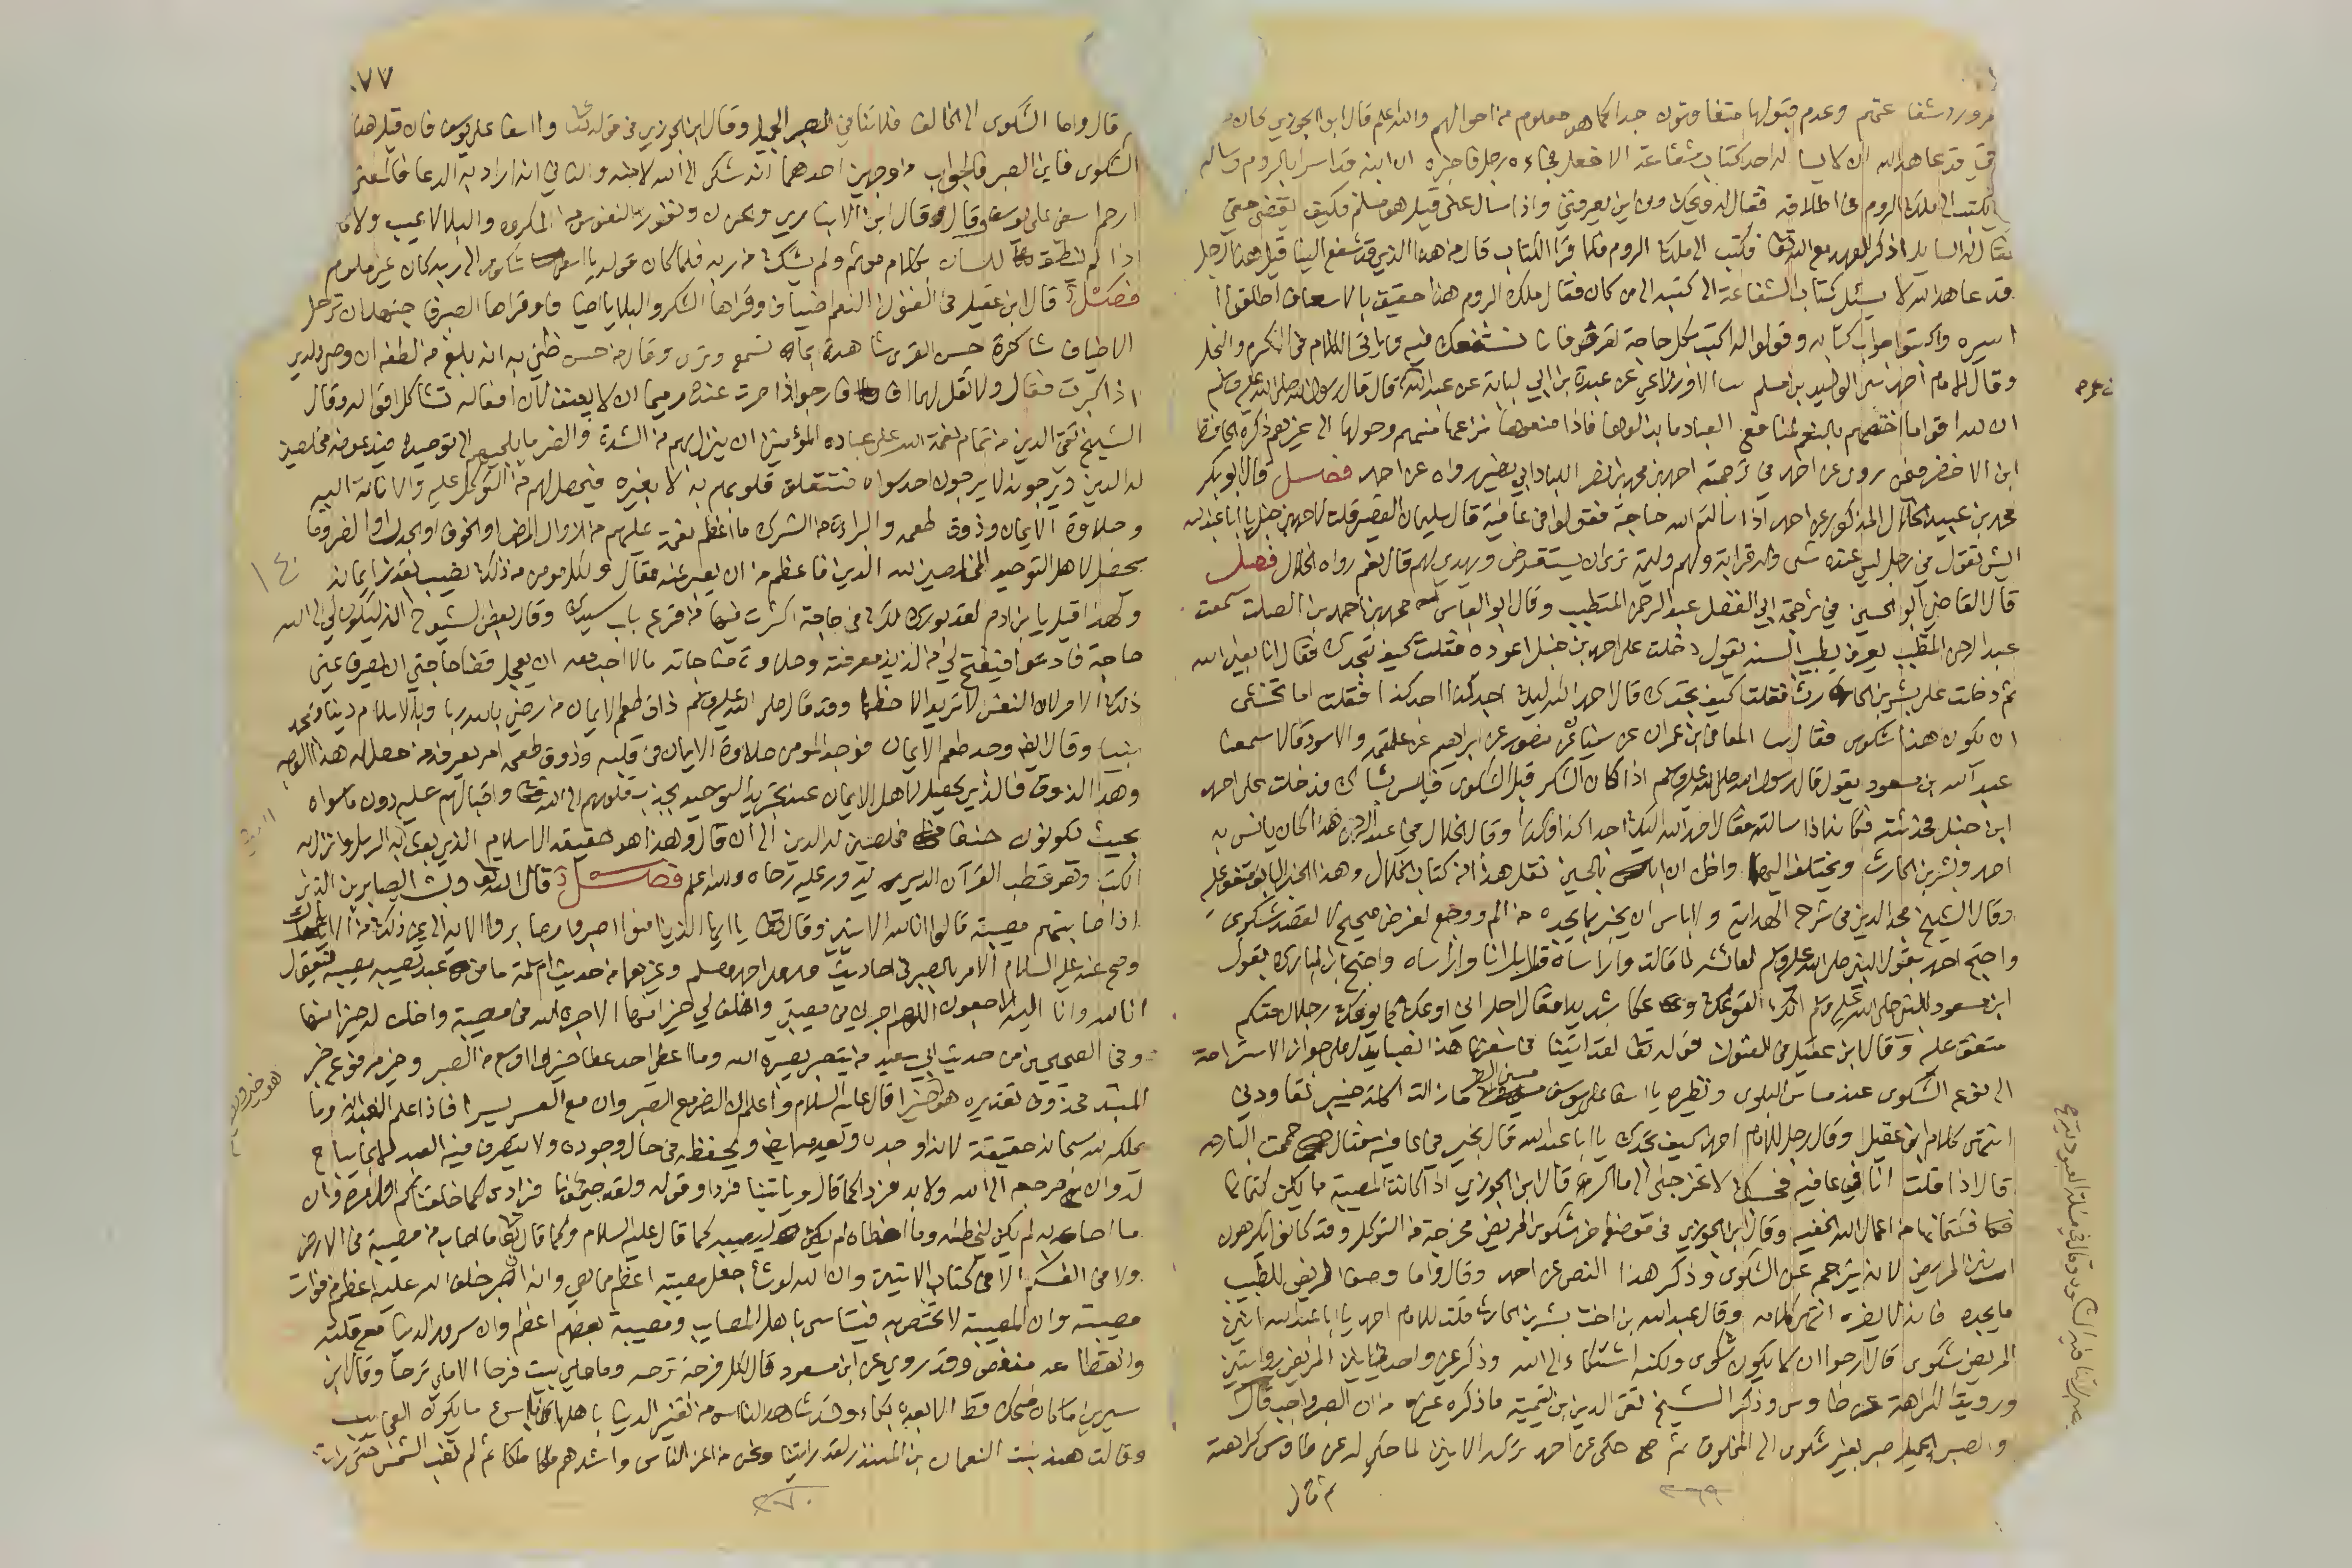 وعدم قبولها متفاوتون جدا كما هو معلوم من احوالهم والله اعلم قال ابن الجوزي كان
قد عاهد الله ان لا يسأله احد كتاب شفاعة الا فعل فجاءه رجل فاخبره ان ابنه قد اسر بالروم وساله
ان يكتب الى ملك الروم في اطلاقه فقال له ويحك ومن اين يعرفني واذا سال عني قيل هو مسلم فكيف يقضي حقي
فقال له السايل اذكر العهد مع الله تعالى فكتب الى ملك الروم فلما قرا الكتاب قال من هذا الذي قد شفع الينا قيل هذا رجل
قد عاهد الله لا يسئل كتاب الشفاعة الا كتبه الى من كان فقال ملك الروم هذا حقيق بالاسعاف اطلقوا
اسيره واكتبوا جواب كتابه وقولوا له اكتب بكل حاجة تعرض فانا نشفعك فيه وياتي الكلام في الكرم والبخل
وقال الامام احمد ثنا الوليد بن مسلم ثنا الاوزاعي عن عبدة بن ابي لبابة عن عبد الله قال قال رسول الله صلى الله عليه وسلم
ان لله اقواما اختصهم بالنعم لمنافع العباد ما بذلوها فاذا منعوها نزعها منهم وحولها الى غيرهم ذكره الحافظ
ابن الاخضر فيمن روى عن احمد في ترجمة احمد بن محمد بن نصر اللباد ابي نصر رواه عن احمد فصل قال ابو بكر
محمد بن عبيد الخلال المذكور عن احمد اذا سالتم الله حاجة فقولوا في عافية قال سليمان القصير قلت لاحمد بن حنبل يا ابا عبد الله
ايش تقول في رجل ليس عنده شي وله قرابة ولهم وليمة ترى ان يستقرض ويهدي لهم قال نعم رواه الخلال فصل
قال القاضي ابو الحسين في ترجمة ابي الفضل عبد الرحمن المتطبب وقال ابو العباس محمد بن احمد بن الصلت سمعت
عبد الرحمن المتطبب يعرف بطبيب السنة يقول دخلت على احمد بن حنبل اعوده فقلت كيف تجدك فقال انا بعين الله
ثم دخلت على بشر بن الحارث فقلت كيف تجدك قال احمد الله اليك اجد كذا اجد كذا فقلت اما تخشى
ان يكون هذا شكوى فقال ثنا المعافى بن عمران عن سفيان عن منصور عن ابراهيم عن علقمة والاسود قالا سمعنا
عبد الله بن مسعود يقول قال رسول الله صلى الله عليه وسلم اذا كان الشكر قبل الشكوى فليس بشاك فدخلت على احمد
ابن حنبل فحدثته فكان اذا سالته فقال احمد الله اليك اجد كذا وكذا وقال الخلال في عبد الرحمن هذا كان يانس به
احمد وبشر بن الحارث ويختلف اليهما واظن ان ابا الحسين نقل هذا من كتاب الخلال وهذا الخبر السابق متفق عليه
وقال الشيخ مجد الدين في شرح الهداية ولا باس ان يخبر بما يجده من الم ووجع لغرض صحيح لا لقصد شكوى
واحتج احمد بقول النبي صلى الله عليه وسلم لعائشة لما قالت وارأساه قال بل انا وارأساه واحتج ابن المبارك بقول
ابن مسعود للنبي صلى الله عليه وسلم انك لتوعك وعكا شديدا فقال اجل اني اوعك كما يوعك رجلان منكم
متفق عليه وقال ابن عقيل في الفنون قوله تعالى لقد لقينا من سفرنا هذا نصبا يدل على جواز الاستراحة
الى نوع الشكوى عند مساس البلوى ونظيره يا اسفى على يوسف مسني الضر ما زالت اكلة خيبر تعاودني
انتهى كلام ابن عقيل وقال رجل للامام احمد كيف تجدك يا ابا عبد الله قال بخير في عافية فقال حممت البارحة
قال اذا قلت انا في عافية فحسبك لا تخرجني الى ما اكره قال ابن الجوزي اذا كانت المصيبة ما يمكن كتمانها
فكتمانها من اعمال الله الخفية وقال ابن الجوزي في موضع اخر شكوى المريض مخرجة من التوكل وقد كانوا يكرهون
انين المريض لانه يترجم عن الشكوى وذكر هذا النص عن احمد وقال واما وصف المريض للطبيب
ما يجده فانه لا يضره انتهى كلامه وقال عبد الله بن اخت بشر بن الحارث قلت للامام احمد يا ابا عبد الله انين
المريض شكوى قال ارجو ان لا يكون شكوى ولكنه اشتكاء الى الله وذكر غير واحد في انين المريض روايتين
ورويت الكراهة عن طاوس وذكر الشيخ تقي الدين بن تيمية ما ذكره غيره من ان الصبر واجب قال
والصبر الجميل صبر بغير شكوى الى المخلوق ثم حكى عن احمد تركه الانين لما حكي له عن طاوس كراهته
٢٦٩
٧٧
قال واما الشكوى الى الخالق فلا تنافي الصبر الجميل وقال ابن الجوزي في قوله تعالى وا اسفا على يوسف فان قيل هذا
الشكوى فاين الصبر فالجواب من وجهين احدهما انه شكى الى الله لا منه والثاني انه اراد به الدعا فالمعنى
ارحم اسفي على يوسف وقال وقال ابن الانباري والحزن ونفور النفوس من المكروه والبلا لا عيب ولا
اذا لم ينطق اللسان بكلام موثم ولم يشك من ربه فلما كان قوله يا اسفى شكوى الى ربه كان غير ملوم
فصل قال ابن عقيل في الفنون النعم اضياف وقراها الشكر والبلايا اضياف وقراها الصبر فاجتهد ان ترحل
الاضياف شاكرة حسن القرى شاهدة بما تسمع وترى وقال من حسن ظني به انه بلغ من لطفه ان وصى ولدي
اذا كبرت فقال ولا تقل لهما اف فارجو اذا صرت عنده رميما ان لا يعسف لان افعاله تشاكل اقواله وقال
الشيخ تقي الدين من تمام نعمة الله على عباده المؤمنين ان ينزل بهم من الشدة والضر ما يلجيهم الى توحيده فيدعونه مخلصين
له الدين ويرجونه لا يرجون احد سواه فتتعلق قلوبهم به لا بغيره فيحصل لهم من التوكل عليه والانابة اليه
وحلاوة الايمان وذوق طعمه والبراءة من الشرك ما اعظم نعمة عليهم من زوال المرض او الخوف او الجدب او الضر وما
يحصل لاهل التوحيد المخلصين لله الدين فاعظم من ان يعبر عنه مقال ولكل مومن من ذلك نصيب بقدر ايمانه
ولهذا قيل يا بن ادم لقد بورك لك في حاجة اكثرت فيها من قرع باب سيدك وقال بعض الشيوخ انه ليكون لي الى الله
حاجة فادعوا فيفتح لي من لذيذ معرفته وحلاوة مناجاته ما لا احب معه ان يعجل قضا حاجتي ان يصرف عني
ذلك الامر لان النفس لا تريد الا حظها وقد قال صلى الله عليه وسلم ذاق طعم الايمان من رضي بالله ربا وبالاسلام دينا وبمحمد
نبيا وقال ايض وجد طعم الايمان فوجد المومن حلاوة الايمان في قلبه وذوق طعمه امر يعرفه من حصل له هذا الوجد
وهذا الذوق فالذي يحصل لاهل الايمان عند تجريد التوحيد يجذب قلوبهم الى الله تعالى واقبالهم عليه دون ما سواه
بحيث يكونون حنفا مخلصين له الدين الى ان قال وهذا هو حقيقة الاسلام الذي بعث به الرسل وانزل به
الكتب وهو قطب القرآن الذي يدور عليه رحاه والله اعلم فصل قال الله تعالى وبشر الصابرين الذين
اذا اصابتهم مصيبة قالوا انا لله الايتين وقال تعالى يا ايها الذين امنوا اصبروا وصابروا الاية الى غير ذلك من الايات
وصح عنه عليه السلام الامر بالصبر في احاديث احمد ومسلم وغيرهما من حديث ام سلمة ما من عبد تصيبه مصيبة فيقول
انا لله وانا اليه راجعون اللهم اجرني في مصيبتي واخلف لي خيرا منها الا اجره الله في مصيبته واخلف له خيرا منها
وفي الصحيحين من حديث ابي سعيد من يتصبر يصبره الله وما اعطي احد عطا خيرا واوسع من الصبر وخير مرفوع خبر
المبتدا محذوف تقديره هو خير قال عليه السلام واعلم ان النصر مع الصبر وان مع العسر يسرا فاذا علم العبد انه وما
يملكه لله سبحانه حقيقة لانه اوجده من عدم ويعدمه ايضا ويحفظه في حال وجوده ولا يتصرف فيه العبد الا بما يباح
له وان مرجعه الى الله ولا بد فردا كما قال وياتينا فردا وقوله ولقد جيتمونا فرادى كما خلقناكم اول مرة وان
ما اصابه لم يكن ليخطئه وما اخطاه لم يكن ليصيبه كما قال عليه السلام وكما قال تعالى ما اصاب من مصيبة في الارض
ولا في انفسكم الا في كتاب الايتين وان الله لو شا جعل مصيبته اعظم مما هي وانه ان صبر خلف الله عليه اعظم من فوات
مصيبته وان المصيبة لا تختص به فيتاسى باهل المصايب ومصيبة بعضهم اعظم وان سرور الدنيا مع قلته
وانقطاعه منغص وقد روي عن ابن مسعود قال لكل فرحة ترحة وما ملئ بيت فرحا الا ملئ ترحا وقال ابن
سيرين ما كان ضحك قط الا بعده بكاء وقد شاهد الناس من تغير الدنيا باهلها في اسرع ما يكون العجايب
وقالت هند بنت النعمان بن المنذر لقد رايتنا ونحن من اعز الناس واشدهم ملكا ثم لم تغب الشمس حتى رايتنا
٢٧٠